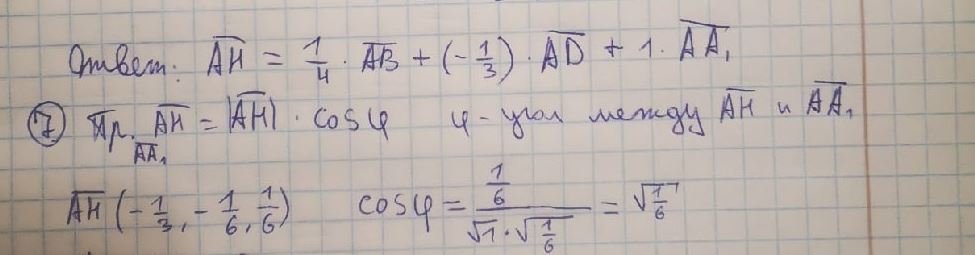 Ответ: AH = 1/4 · AB + (-1/3) · AD + 1 · AA₁
⑦ Пр. AA₁ AH = |AH| · cosφ φ - угол между AH и AA₁
AH (-1/3, -1/6, 1/6) cosφ = (1/6)/(√1 · √(1/6)) = √(1/6)